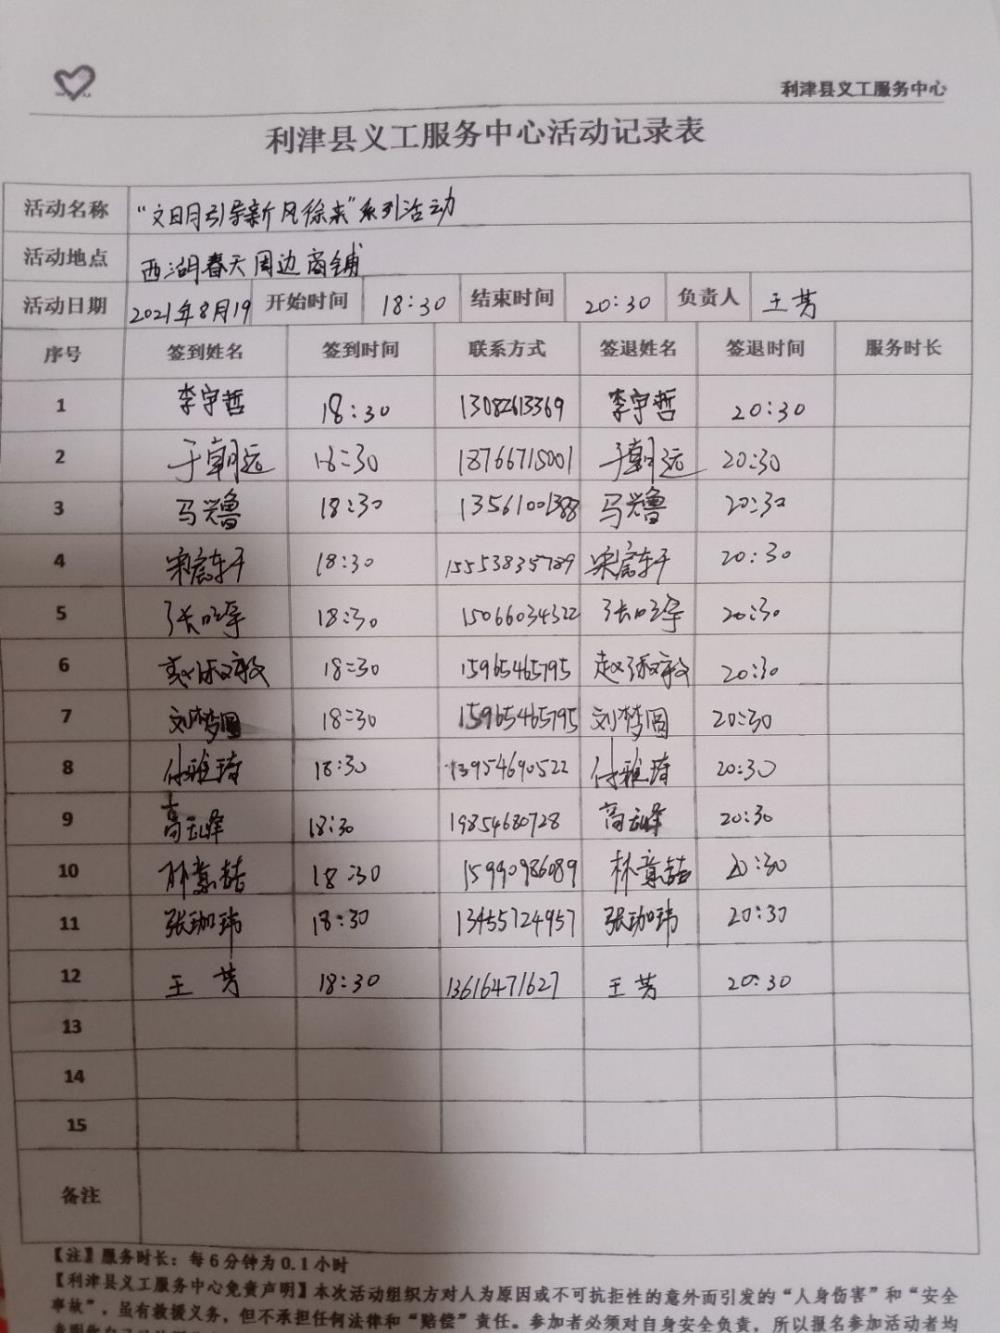 利津县义工服务中心
利津县义工服务中心活动记录表
活动名称 “文明引导新风徐来”系列活动
活动地点 西湖春天周边商铺
活动日期 2021年8月19 开始时间 18:30 结束时间 20:30 负责人 王芳
序号 签到姓名 签到时间 联系方式 签退姓名 签退时间 服务时长
1 李宇哲 18:30 13082613369 李宇哲 20:30
2 于朝远 18:30 18766715001 于朝远 20:30
3 马兴鲁 18:30 13561001388 马兴鲁 20:30
4 18:30 15553835789 20:30
5 18:30 15066034322 20:30
6 18:30 15965465795 20:30
7 刘梦圆 18:30 15965465795 刘梦圆 20:30
8 付雅琦 18:30 13954690522 付雅琦 20:30
9 高云峰 18:30 19854680728 高云峰 20:30
10 林意喆 18:30 15990986089 林意喆 20:30
11 张珈玮 18:30 13455724957 张珈玮 20:30
12 王芳 18:30 13616471627 王芳 20:30
13
14
15
备注
【注】服务时长：每6分钟为0.1小时
【利津县义工服务中心免责声明】本次活动组织方对人为原因或不可抗拒性的意外而引发的“人身伤害”和“安全
事故”，虽有救援义务，但不承担任何法律和“赔偿”责任。参加者必须对自身安全负责，所以报名参加活动者均